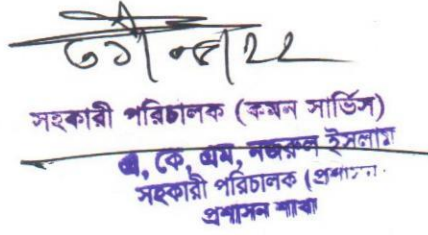 সহকারী পরিচালক (কমন সার্ভিস)
এ, কে, এম, নজরুল ইসলাম
সহকারী পরিচালক (প্রশাসন
প্রশাসন শাখা